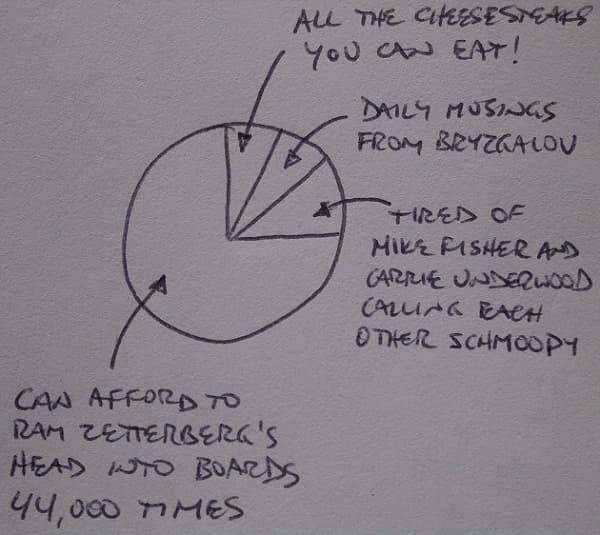 ALL THE CHEESESTEAKS
YOU CAN EAT!
DAILY MUSINGS
FROM BRYZGALOV
TIRED OF
MIKE FISHER AND
CARRIE UNDERWOOD
CALLING EACH
OTHER SCHMOOPY
CAN AFFORD TO
RAM ZETTERBERG'S
HEAD INTO BOARDS
44,000 TIMES